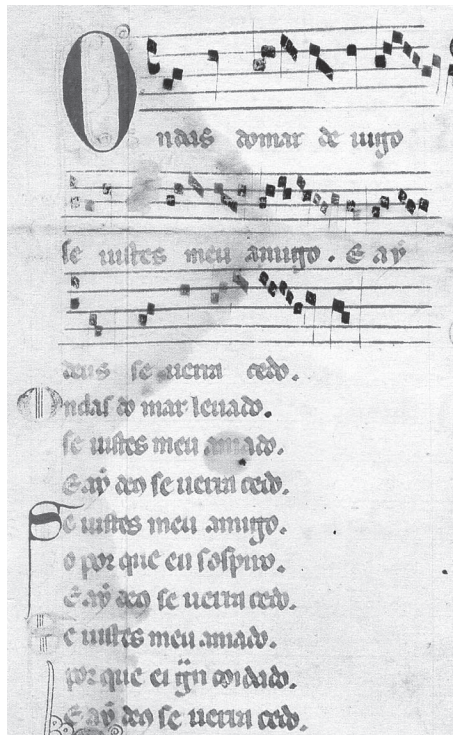 Ondas do mar de uigo
se uistes meu amigo. E aÿ
deus se uerra cedo.
Ondas do mar leuado.
se uistes meu amado.
E aÿ deꝯ se uerra cedo.
Se uistes meu amigo.
o por que eu sospiro.
E aÿ deꝯ se uerra cedo.
Se uistes meu amado.
por que ei gͫn coidado.
E aÿ deꝯ se uerra cedo.